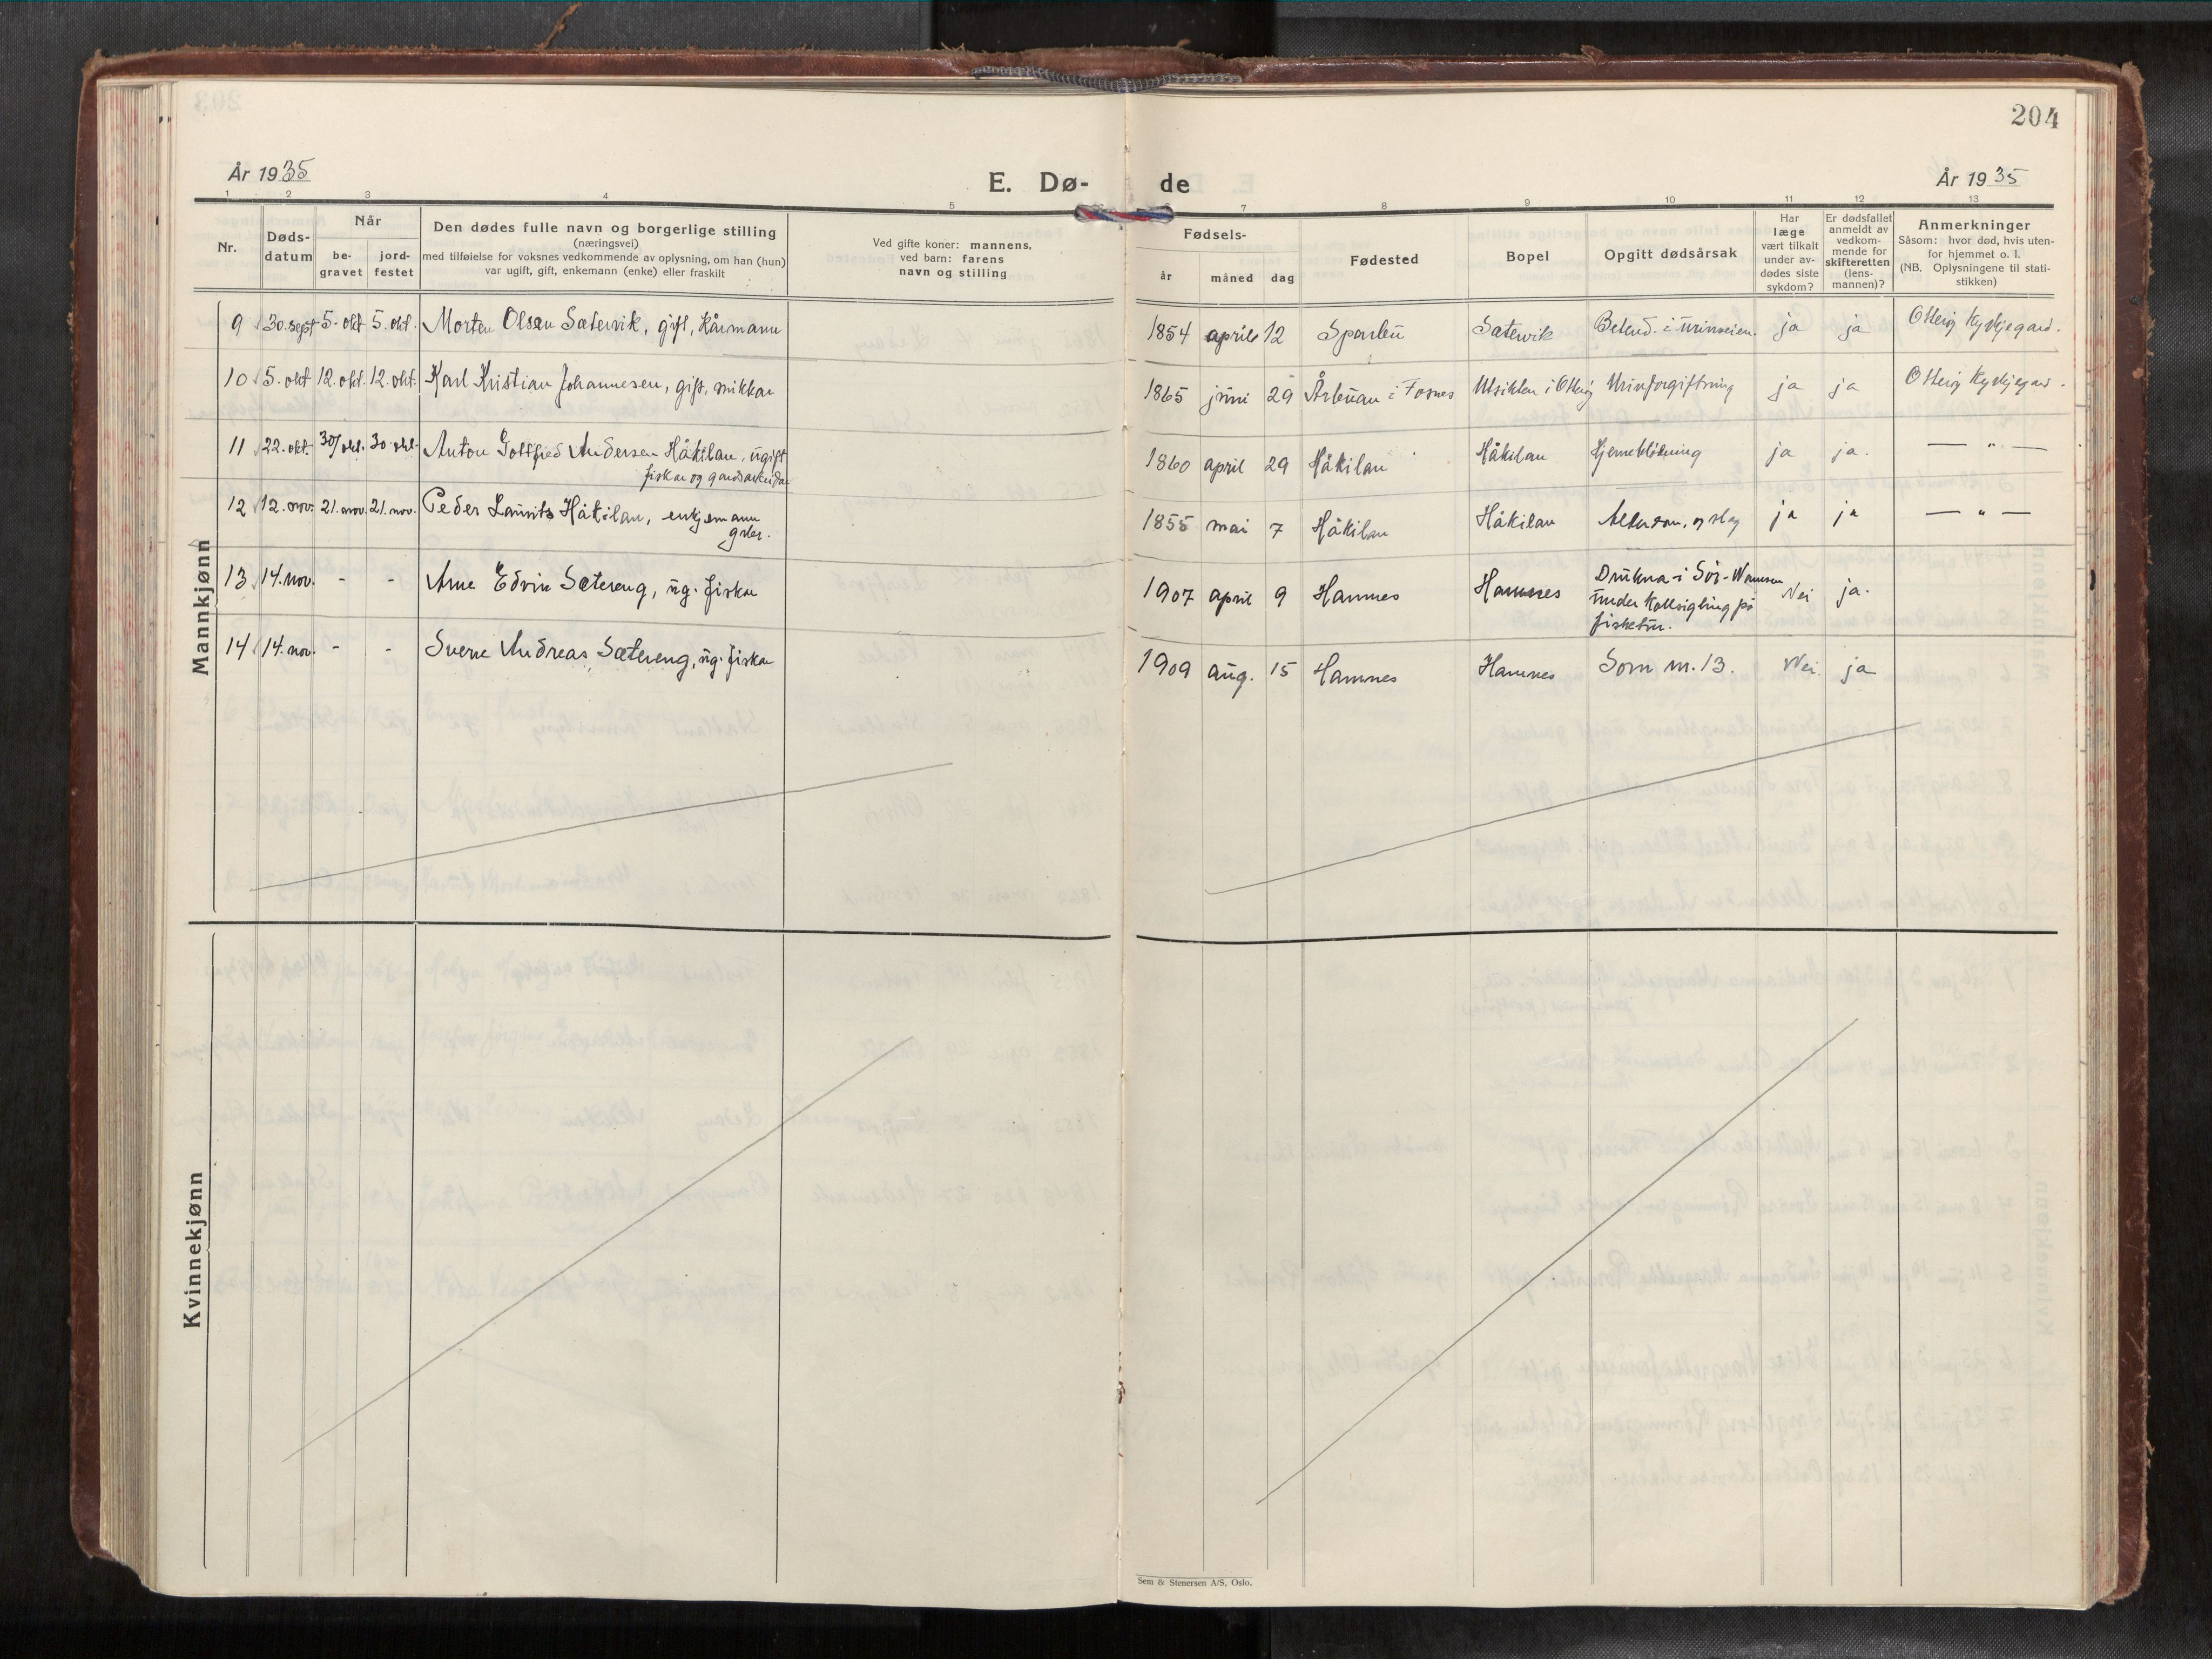 204
År 1935
E. Dø-
de
År 1935
1 2 3 4 5
7 8 9 10 11 12 13
Nr.
Døds-
datum
Når
be-
gravet
jord-
festet
Den dødes fulle navn og borgerlige stilling
(næringsvei)
med tilføielse for voksnes vedkommende av oplysning, om han (hun)
var ugift, gift, enkemann (enke) eller fraskilt
Ved gifte koner: mannens,
ved barn: farens
navn og stilling
Fødsels-
år måned dag
Fødested
Bopel
Opgitt dødsårsak
Har
læge
vært tilkalt
under av-
dødes siste
sykdom?
Er dødsfallet
anmeldt av
vedkom-
mende for
skifteretten
(lens-
mannen)?
Anmerkninger
Såsom: hvor død, hvis uten-
for hjemmet o. l.
(NB. Oplysningene til stati-
stikken)
Mannkjønn
9 30. sept 5. okt 5. okt. Morten Olsen Sætervik, gift, kårmann 1854 april 12 Sparbu Sætervik Betend. i urinveien. ja ja Otterøy Kyrkjegard.
10 5. okt 12. okt. 12. okt. Karl Kristian Johannesen, gift, snikkar 1865 juni 29 Årbuan i Fosnes Utsikten i Otterøy Urinforgiftning ja ja Otterøy Kyrkjegard.
11 22. okt. 30/okt. 30. okt. Anton Gottfred Andersen Håkilan, ugift 1860 april 29 Håkilan Håkilan Hjerneblödning ja ja. — " —
fiskar og gardsarbeidar
12 12. nov. 21. nov. 21. nov. Peder Laurits Håkilan, enkjemann 1855 mai 7 Håkilan Håkilan Alderdom, og slag ja ja — " —
13 14. nov. - - Arne Edvin Sætereng, ug. fiskar 1907 april 9 Hamnes Hamnes Drukna i Sör- Nei ja.
under Kollsigling på
fisketur.
14 14. nov. - - Sverre Andreas Sætereng, ug. fiskar 1909 aug. 15 Hamnes Hamnes Som nr. 13. Nei. ja
Kvinnekjønn
Sem & Stenersen A/S, Oslo.